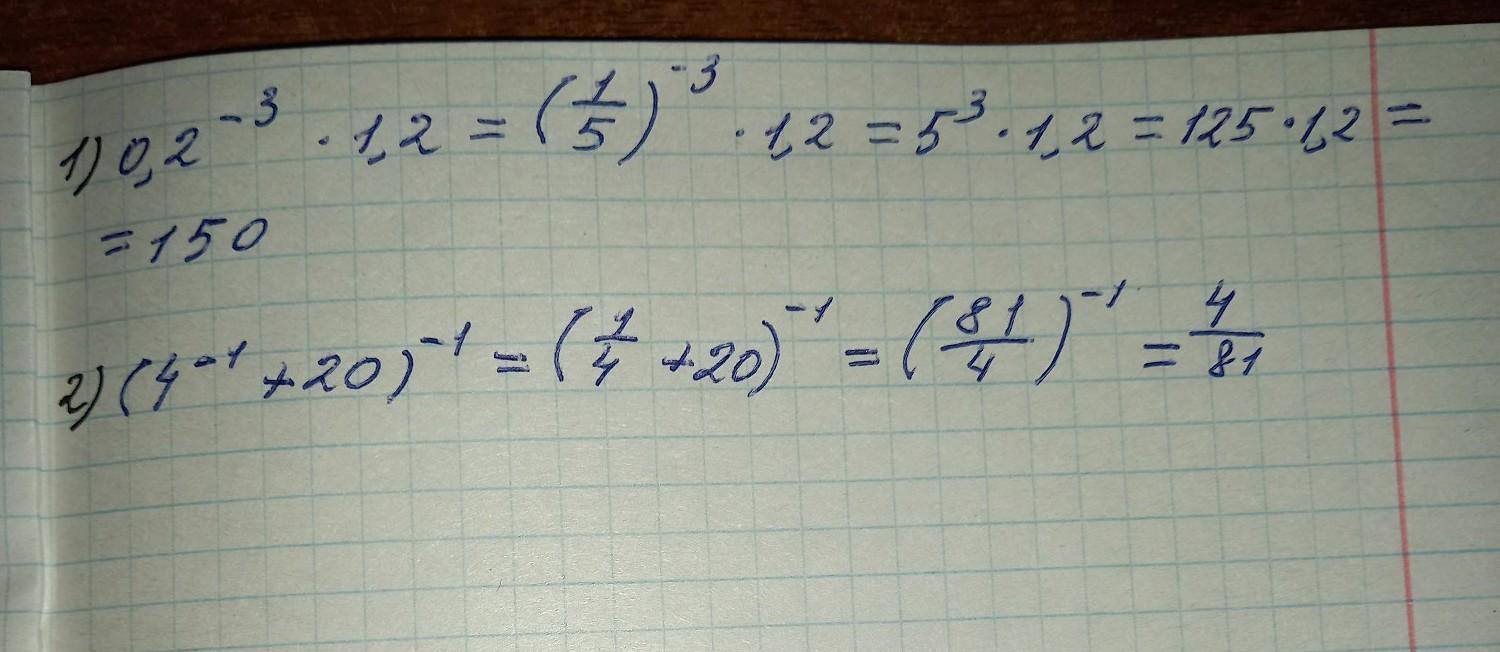 1) 0,2⁻³ · 1,2 = (1/5)⁻³ · 1,2 = 5³ · 1,2 = 125 · 1,2 =
= 150
2) (4⁻¹ + 20)⁻¹ = (1/4 + 20)⁻¹ = (81/4)⁻¹ = 4/81